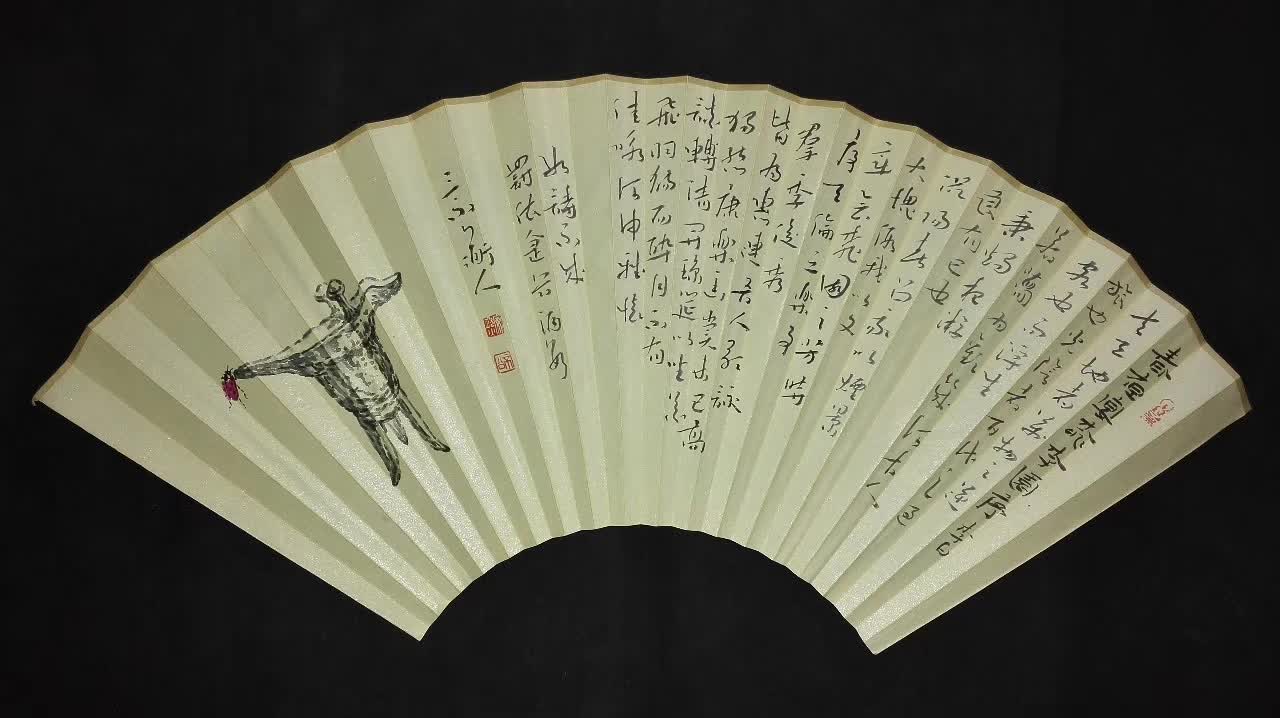 春夜宴桃李園序 李白
夫天地者萬物之逆
旅也光陰者百代之過
客也而浮生
若夢為歡幾何古人
秉燭夜遊
良有已也
況陽春召我以煙景
大塊假我以文
章會桃園之芳
序天倫之樂事
羣季俊秀
皆為惠連吾人歌詠
獨慚康樂幽賞未已高
談轉清開瓊筵以坐花
飛羽觴而醉月不有
佳詠何申雅懷
如詩不成
罰依金谷酒數
三不人